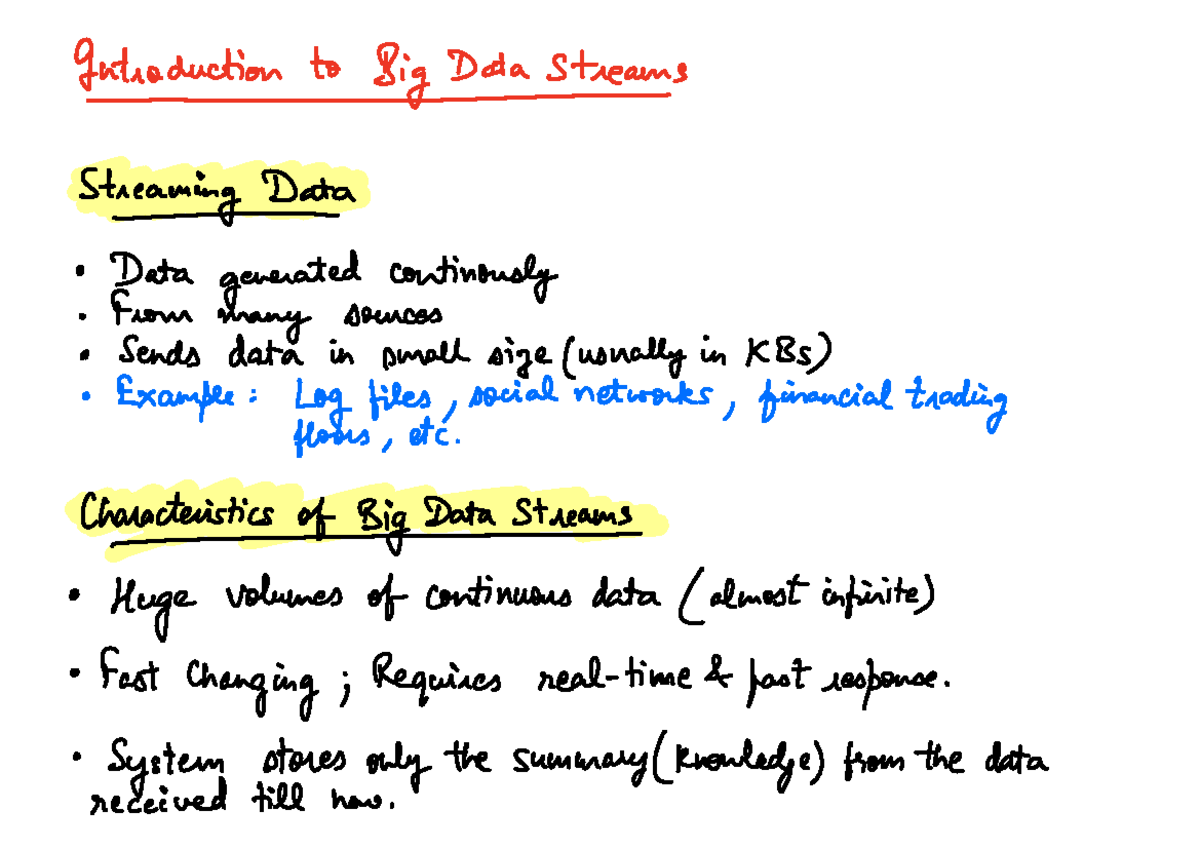 Introduction to Big Data Streams
Streaming Data
• Data generated continously
• From many sources
• Sends data in small size (usually in KBs)
• Example: Log files, social networks, financial trading
floors, etc.
Characteristics of Big Data Streams
• Huge volumes of continuous data (almost infinite)
• Fast Changing; Requires real-time & fast response.
• System stores only the summary (knowledge) from the data
received till now.